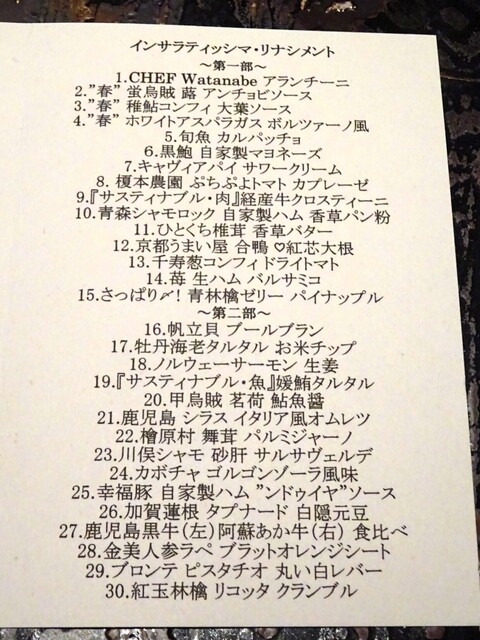 インサラティッシマ・リナシメント
～第一部～
1.CHEF Watanabe アランチーニ
2.”春” 蛍烏賊 蕗 アンチョビソース
3.”春” 稚鮎コンフィ 大葉ソース
4.”春” ホワイトアスパラガス ボルツァーノ風
5.旬魚 カルパッチョ
6.黒鮑 自家製マヨネーズ
7.キャヴィアパイ サワークリーム
8. 榎本農園 ぷちぷよトマト カプレーゼ
9.『サスティナブル・肉』経産牛クロスティーニ
10.青森シャモロック 自家製ハム 香草パン粉
11.ひとくち椎茸 香草バター
12.京都うまい屋 合鴨 ♡紅芯大根
13.千寿葱コンフィドライトマト
14.苺 生ハム バルサミコ
15.さっぱり〆! 青林檎ゼリー パイナップル
～第二部～
16.帆立貝 ブールブラン
17.牡丹海老タルタル お米チップ
18.ノルウェーサーモン 生姜
19.『サスティナブル・魚』媛鮪タルタル
20.甲烏賊 茗荷 鮎魚醤
21.鹿児島 シラス イタリア風オムレツ
22.檜原村 舞茸 パルミジャーノ
23.川俣シャモ 砂肝 サルサヴェルデ
24.カボチャ ゴルゴンゾーラ風味
25.幸福豚 自家製ハム ”ンドゥイヤ”ソース
26.加賀蓮根 タプナード 白隠元豆
27.鹿児島黒牛(左)阿蘇あか牛(右) 食比べ
28.金美人参ラペ ブラットオレンジシート
29.ブロンテ ピスタチオ 丸い白レバー
30.紅玉林檎 リコッタ クランブル